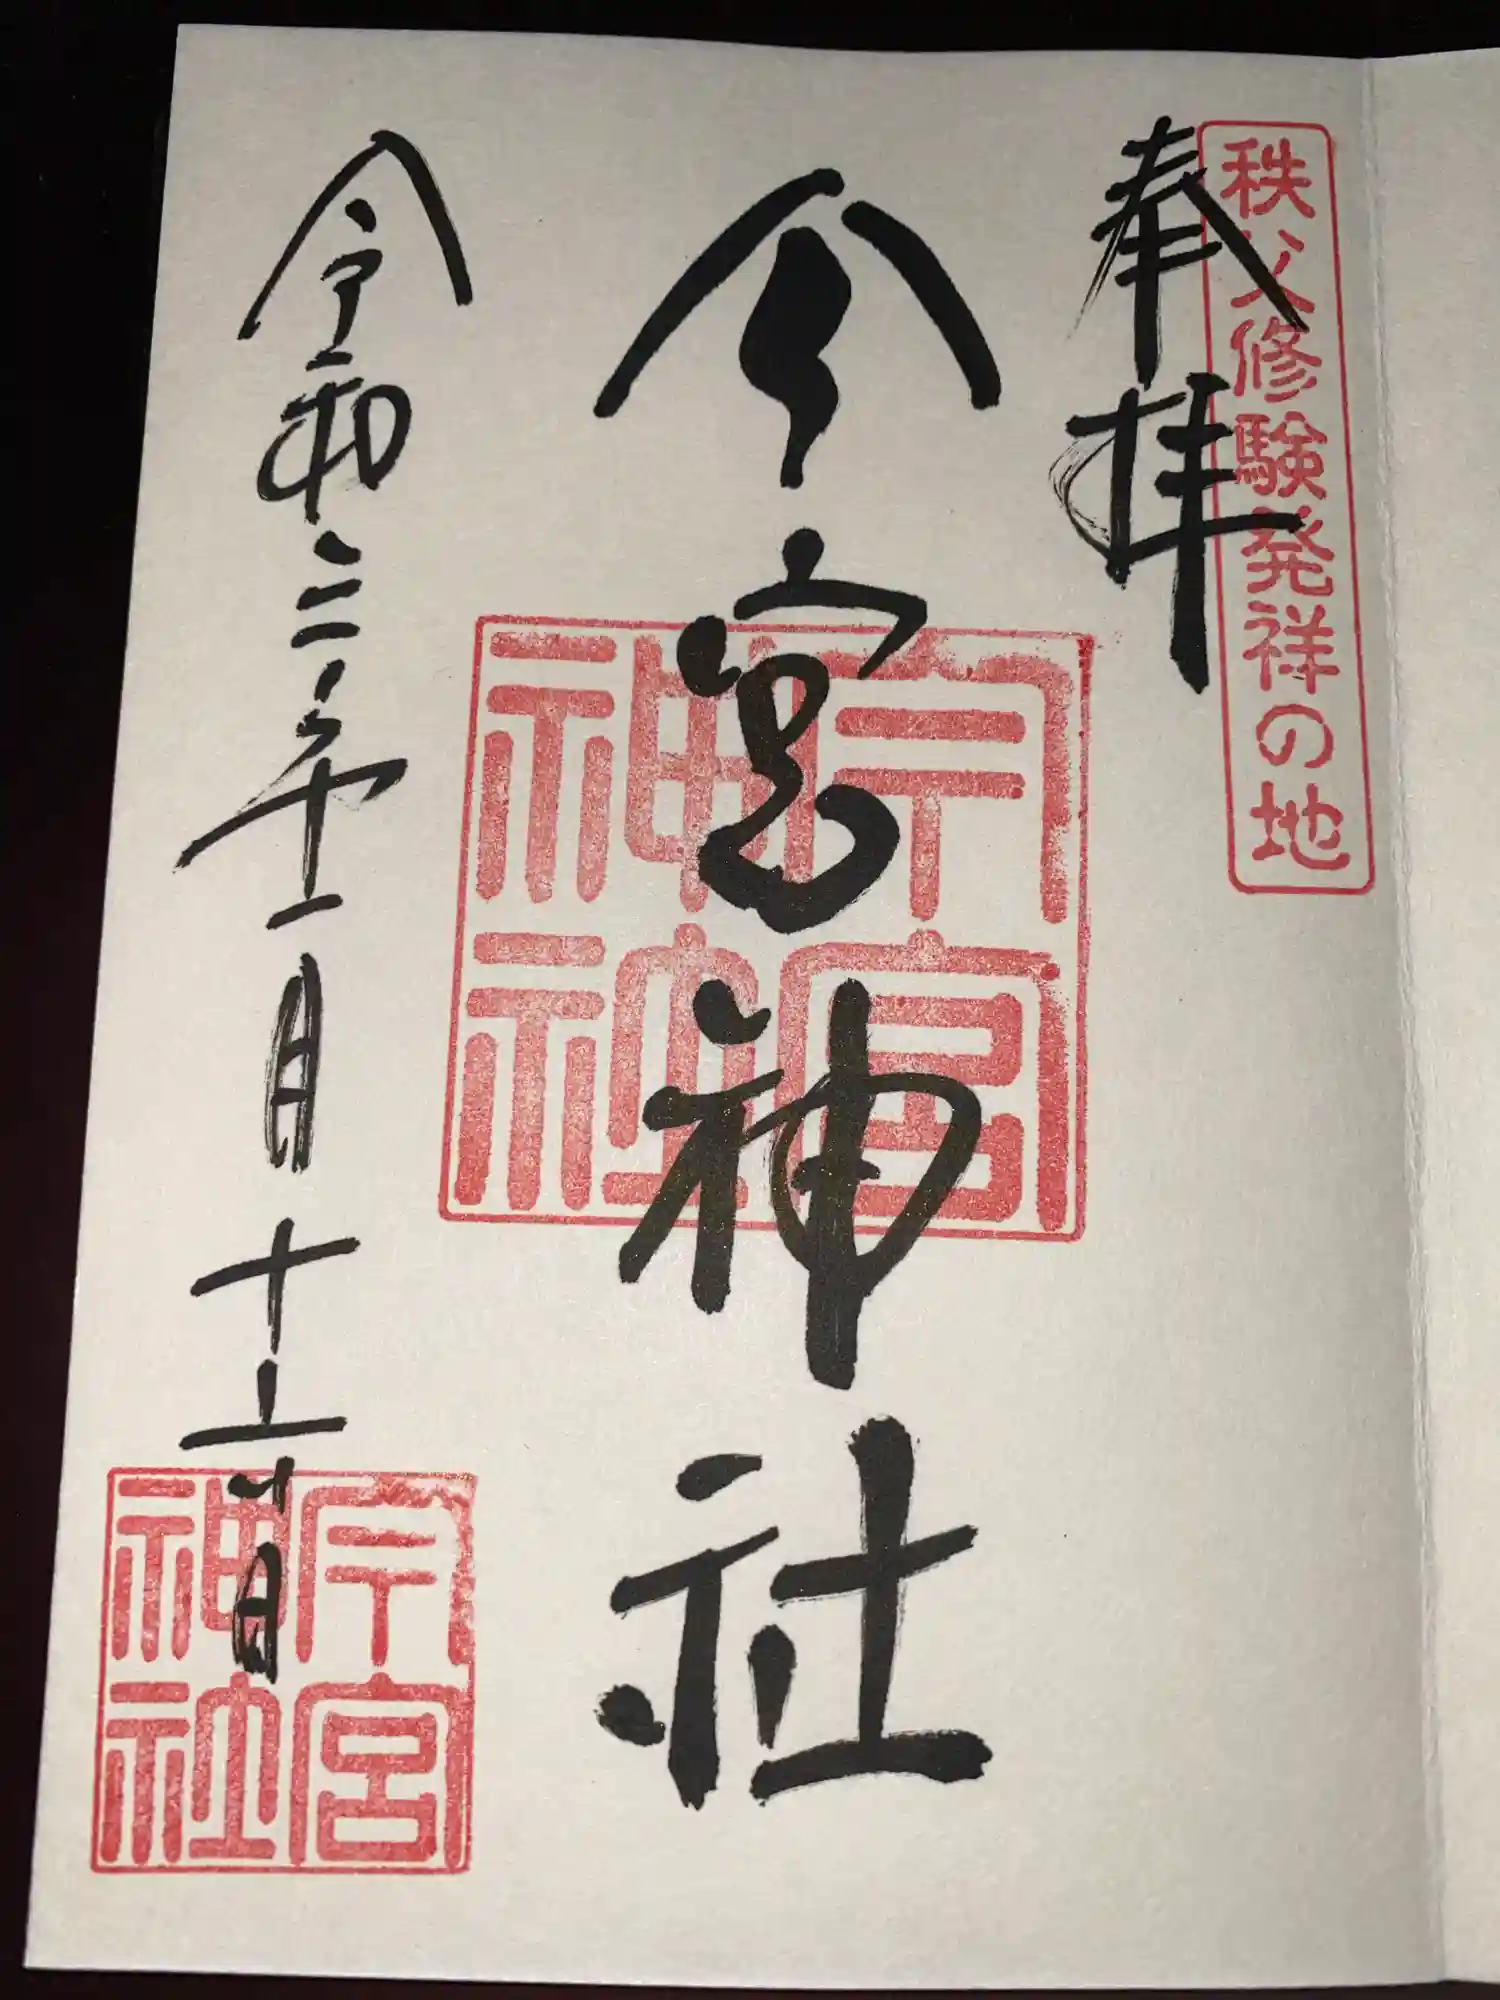 秩父修験発祥の地
奉拝
今宮神社
今宮神社
令和三年 月十六日
今宮神社